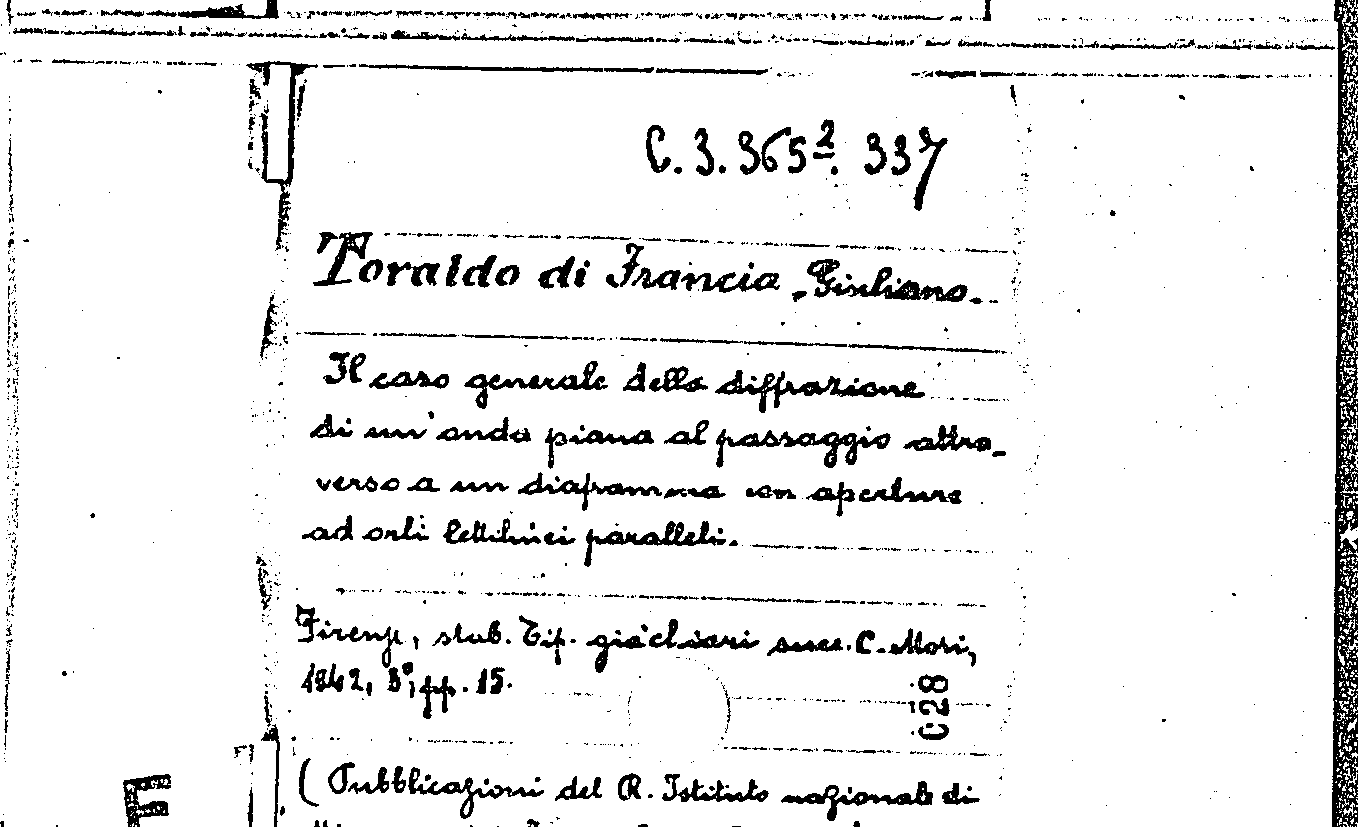 C. 3. 365². 337
Toraldo di Francia, Giuliano.
Il caso generale della diffrazione
di un'onda piana al passaggio attra-
verso a un diaframma con aperture
ad orli rettilinei paralleli.
Firenze, stab. Tip. già chiari succ. C. Mori,
1942, 8°, pp. 15.
C28
( Pubblicazioni del R. Istituto nazionale di
E